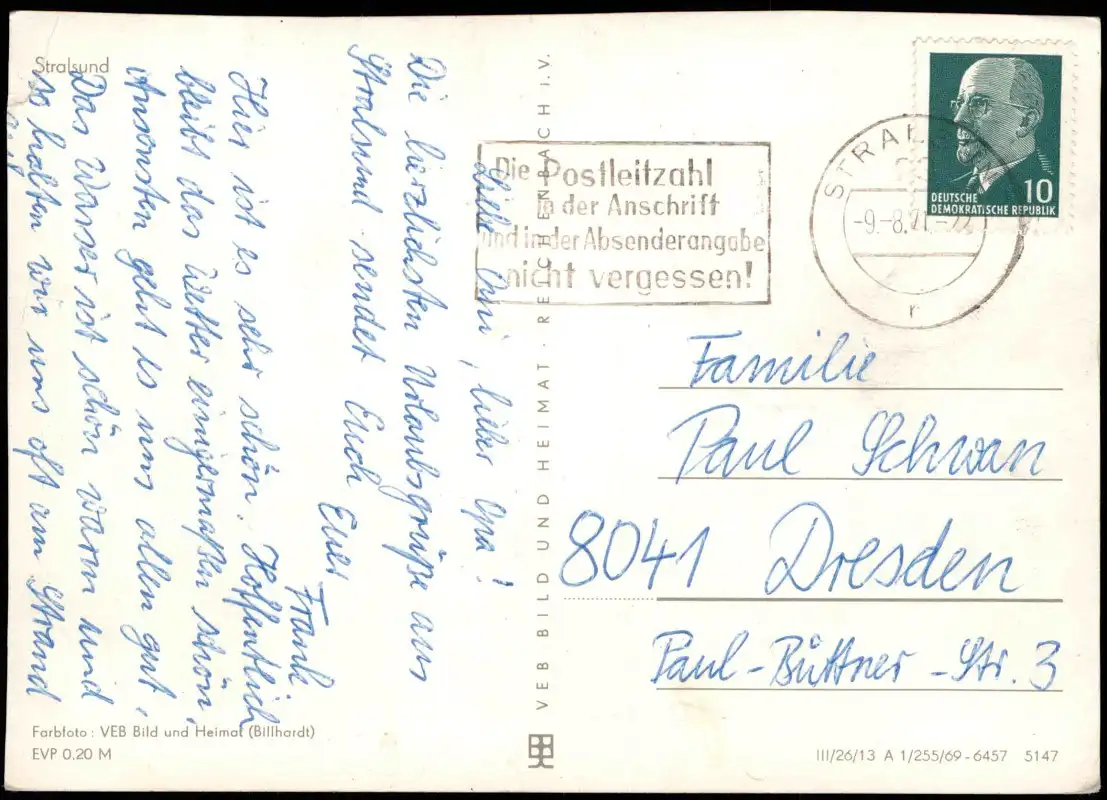 Stralsund
Liebe Omi, lieber Opa!
Die herzlichsten Urlaubsgrüße aus
Stralsund sendet Euch Euer
Frank
Hier ist es sehr schön. Hoffentlich
bleibt das Wetter einigermaßen schön,
Ansonsten geht es uns allen gut,
Das Wasser ist schön warm und
so halten wir uns oft am Strand
auf
Farbfoto: VEB Bild und Heimat (Billhardt)
EVP 0,20 M
VEB BILD UND HEIMAT · REICHENBACH I. V.
Die Postleitzahl
in der Anschrift
und in der Absenderangabe
nicht vergessen!
STRALS
-9.-8.71.-
r
10
DEUTSCHE
DEMOKRATISCHE REPUBLIK
Familie
Paul Schwan
8041 Dresden
Paul-Büttner-Str. 3
III/26/13 A 1/255/69-6457 5147